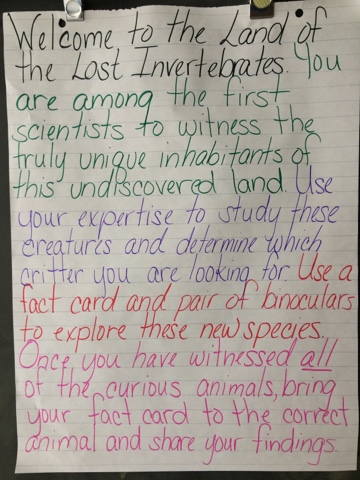 Welcome to the Land of
the Lost Invertebrates. You
are among the first
scientists to witness the
truly unique inhabitants of
this undiscovered land. Use
your expertise to study these
creatures and determine which
critter you are looking for. Use a
fact card and pair of binoculars
to explore these new species.
Once you have witnessed all
of the curious animals, bring
your fact card to the correct
animal and share your findings.